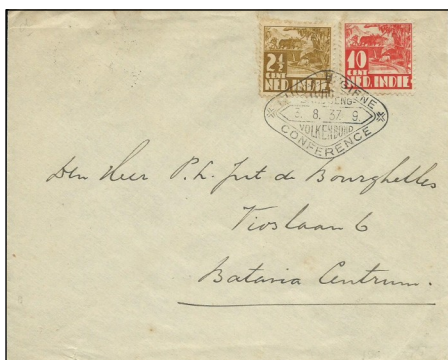 2½
CENT
NED. INDIE
10
CENT
NED. INDIE
HYGIENE
3. 8. 37. 9.
VOLKENBOND
CONFERENCE
Den Heer P. L. Jut de Bourghelles
Vioslaan 6
Batavia Centrum.